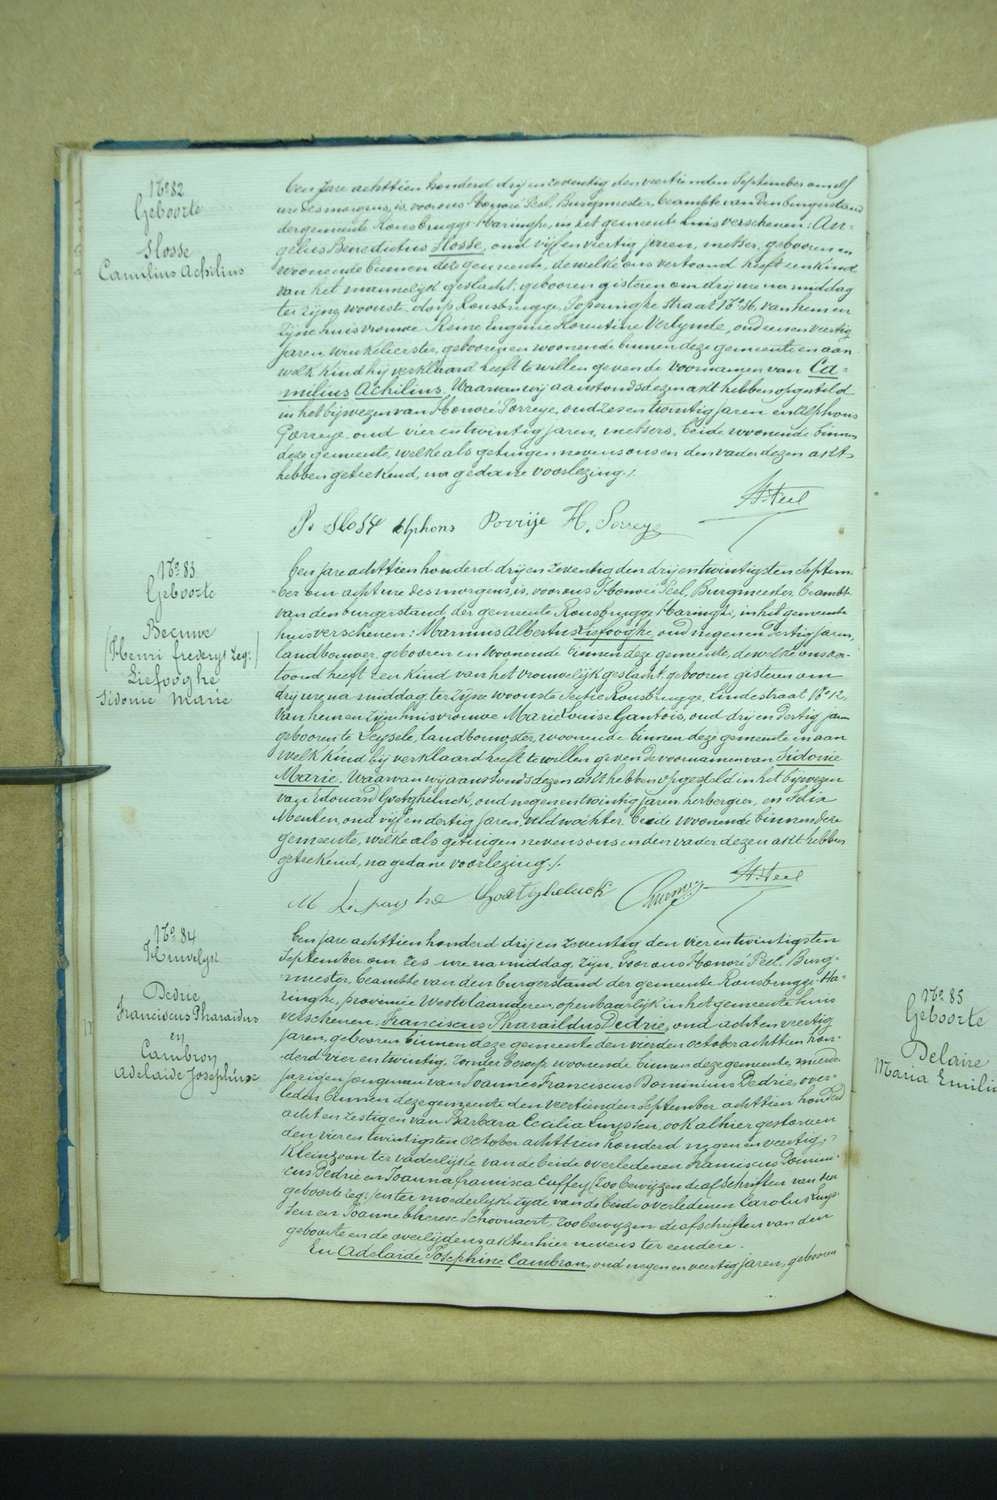 No 82
Geboorte
Slosse
Camilius Achilius
Een Jare achttien honderd drij en zeventig den veertienden September om elf
ure des morgens, is, voor ons Honoré Peel, Burgmeester, beambte van den burgerstand
der gemeente Rousbrugge-Haringhe, in het gemeente huis verschenen: An-
gelius Benedictus Slosse, oud vijf en veertig jaren, metser, geboren en
woonende binnen deze gemeente, dewelke ons vertoond heeft een kind
van het mannelijk geslacht, geboren gisteren om drij ure na middag
ter zijne woonste, dorp Rousbrugge, Poperinghe straat No 36, van hem en
zijne huisvrouwe Reine Eugenie Florentine Verlynde, oud een en veertig
jaren, winkelierster, geboren en woonende binnen deze gemeente en aan
welk kind hij verklaard heeft te willen geven de voornamen van Ca-
milius Achilius. Waarvan wij aanstonds dezen akt hebben opgesteld
in het bijwezen van Honoré Porreye, oud zes en twintig jaren en Alphons
Porreye, oud vier en twintig jaren, metsers, beide woonende binnen
deze gemeente, welke als getuigen nevens ons en den vader dezen akt
hebben geteekend, na gedane voorlezing ./.
H. Peel
Alphons Porrije H. Porreye
No 83
Geboorte
Becuwe
(Henri frederyk Leg:)
Liefooghe
Sidonie Marie
Een Jare achttien honderd drij en zeventig den drij en twintigsten Septem-
ber om acht ure des morgens, is, voor ons Honoré Peel, Burgmeester, beambte
van den burgerstand, der gemeente Rousbrugge-Haringhe, in het gemeente
huis verschenen: Marinus Albertus Liefooghe, oud negen en dertig jaren,
landbouwer, geboren en woonende binnen deze gemeente, dewelke ons ver-
toond heeft een kind van het vrouwelijk geslacht, geboren gisteren om
drij ure na middag, ter zijne woonste Sectie Rousbrugge, Lindestraat No 12,
van hem en zijn huisvrouwe Marie Louise Gantois, oud drij en dertig jaren
geboren te Leysele, landbouwster, woonende binnen deze gemeente en aan
welk kind hij verklaard heeft te willen geven de voornamen van Sidonie
Marie. Waarvan wij aanstonds dezen akt hebben opgesteld in het bijwezen
van Edouard Goetghelueck, oud negen en twintig jaren, herbergier, en Felix
Meulen, oud vijf en dertig jaren, veldwachter, beide woonende binnen deze
gemeente, welke als getuigen nevens ons en den vader dezen akt hebben
geteekend, na gedane voorlezing ./.
H. Peel
M Liefooghe Goetghelueck
No 84
Huwelijk
Dedrie
Franciscus Pharaidus
en
Cambron
Adelaide Josephine
Een Jare achttien honderd drij en zeventig den vier en twintigsten
September om zes ure na middag, zijn, voor ons Honoré Peel, Burg-
meester, beambte van den burgerstand der gemeente Rousbrugge-Ha-
ringhe, provincie Westvlaanderen, openbaarlijk in het gemeente huis
verschenen: Franciscus Pharaildus Dedrie, oud acht en veertig
jaren, geboren binnen deze gemeente den vierden october achttien hon-
derd vier en twintig, zonder beroep, woonende binnen deze gemeente, meerder-
jarigen jongman van Joannes Franciscus Dominicus Dedrie, over-
leden binnen deze gemeente den veertienden September achttien honderd
acht en zestig en van Barbara Cecilia Luyssen, ook alhier gestorven
den vier en twintigsten october achttien honderd negen en veertig;
kleinzoon ter vaderlijke van de beide overledenen Franciscus Domini-
cus Dedrie en Joanna Francisca Cuffey (zoo bewijzen de afschriften van den
geboorte Leg:) en ter moederlijke zijde van de beide overledenen Carolus Luys-
sen en Joanne Therese Schoonaert, zoo bewijzen de afschriften van den
geboorte en de overlijdens akten hier nevens ter eendere.
En Adelaide Josephine Cambron, oud negen en veertig jaren, geboren
No 85
Geboorte
Delaire
Maria Emili